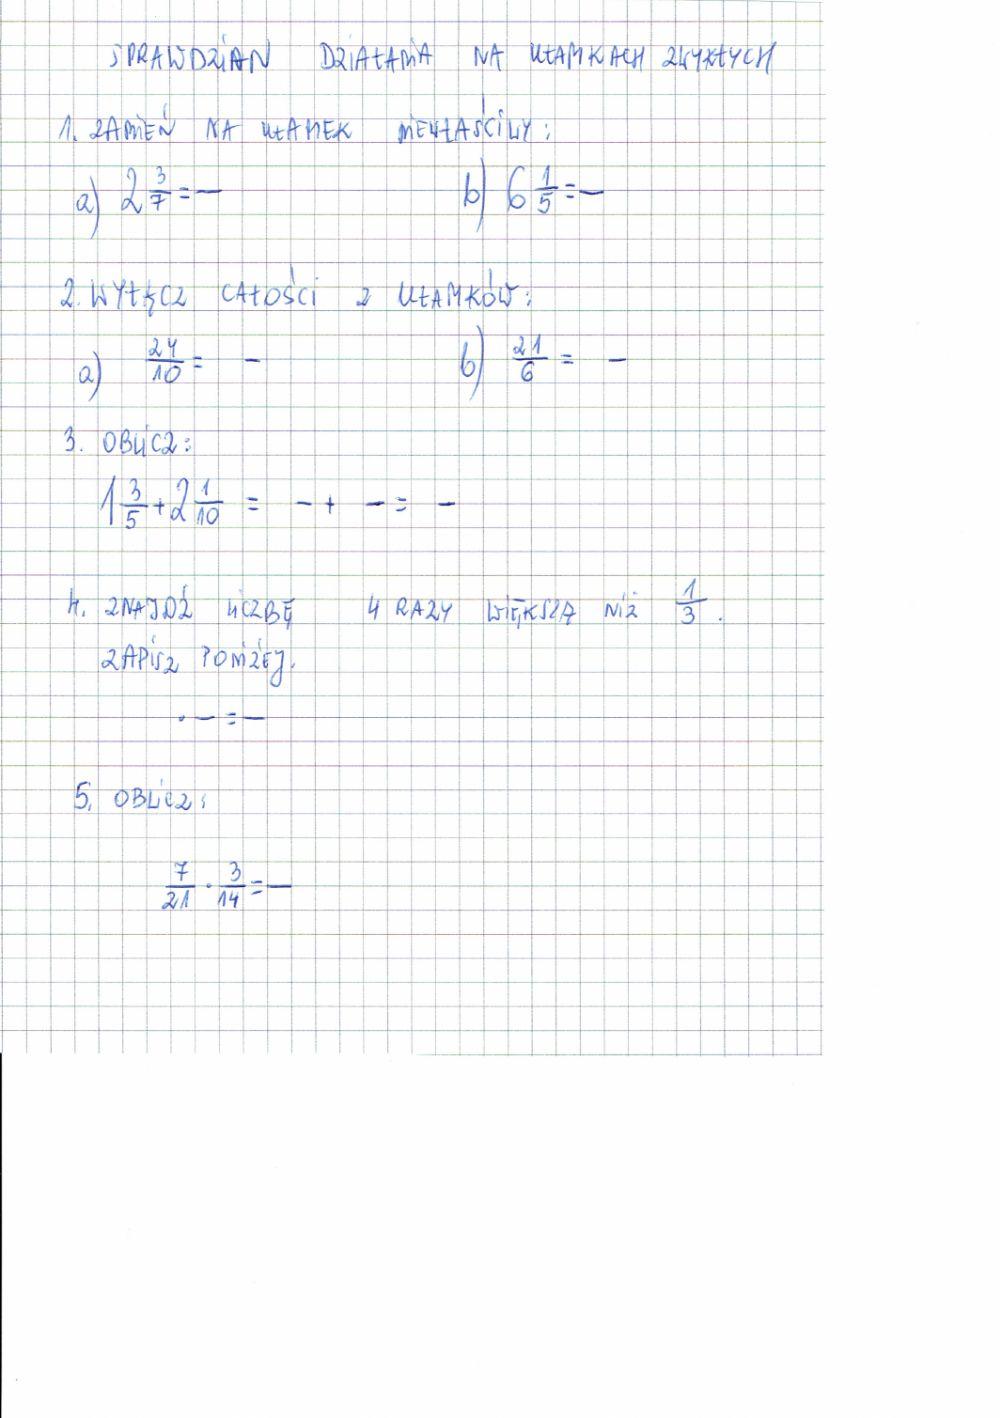 SPRAWDZIAN DZIAŁANIA NA UŁAMKACH ZWYKŁYCH
1. ZAMIEŃ NA UŁAMEK NIEWŁAŚCIWY:
a) 2 3/7 = — b) 6 1/5 = —
2. WYŁĄCZ CAŁOŚCI Z UŁAMKÓW:
a) 24/10 = — b) 21/6 = —
3. OBLICZ:
1 3/5 + 2 1/10 = — + — = —
4. ZNAJDŹ LICZBĘ 4 RAZY WIĘKSZĄ NIŻ 1/3.
ZAPISZ PONIŻEJ.
· — = —
5. OBLICZ:
7/21 · 3/14 = —